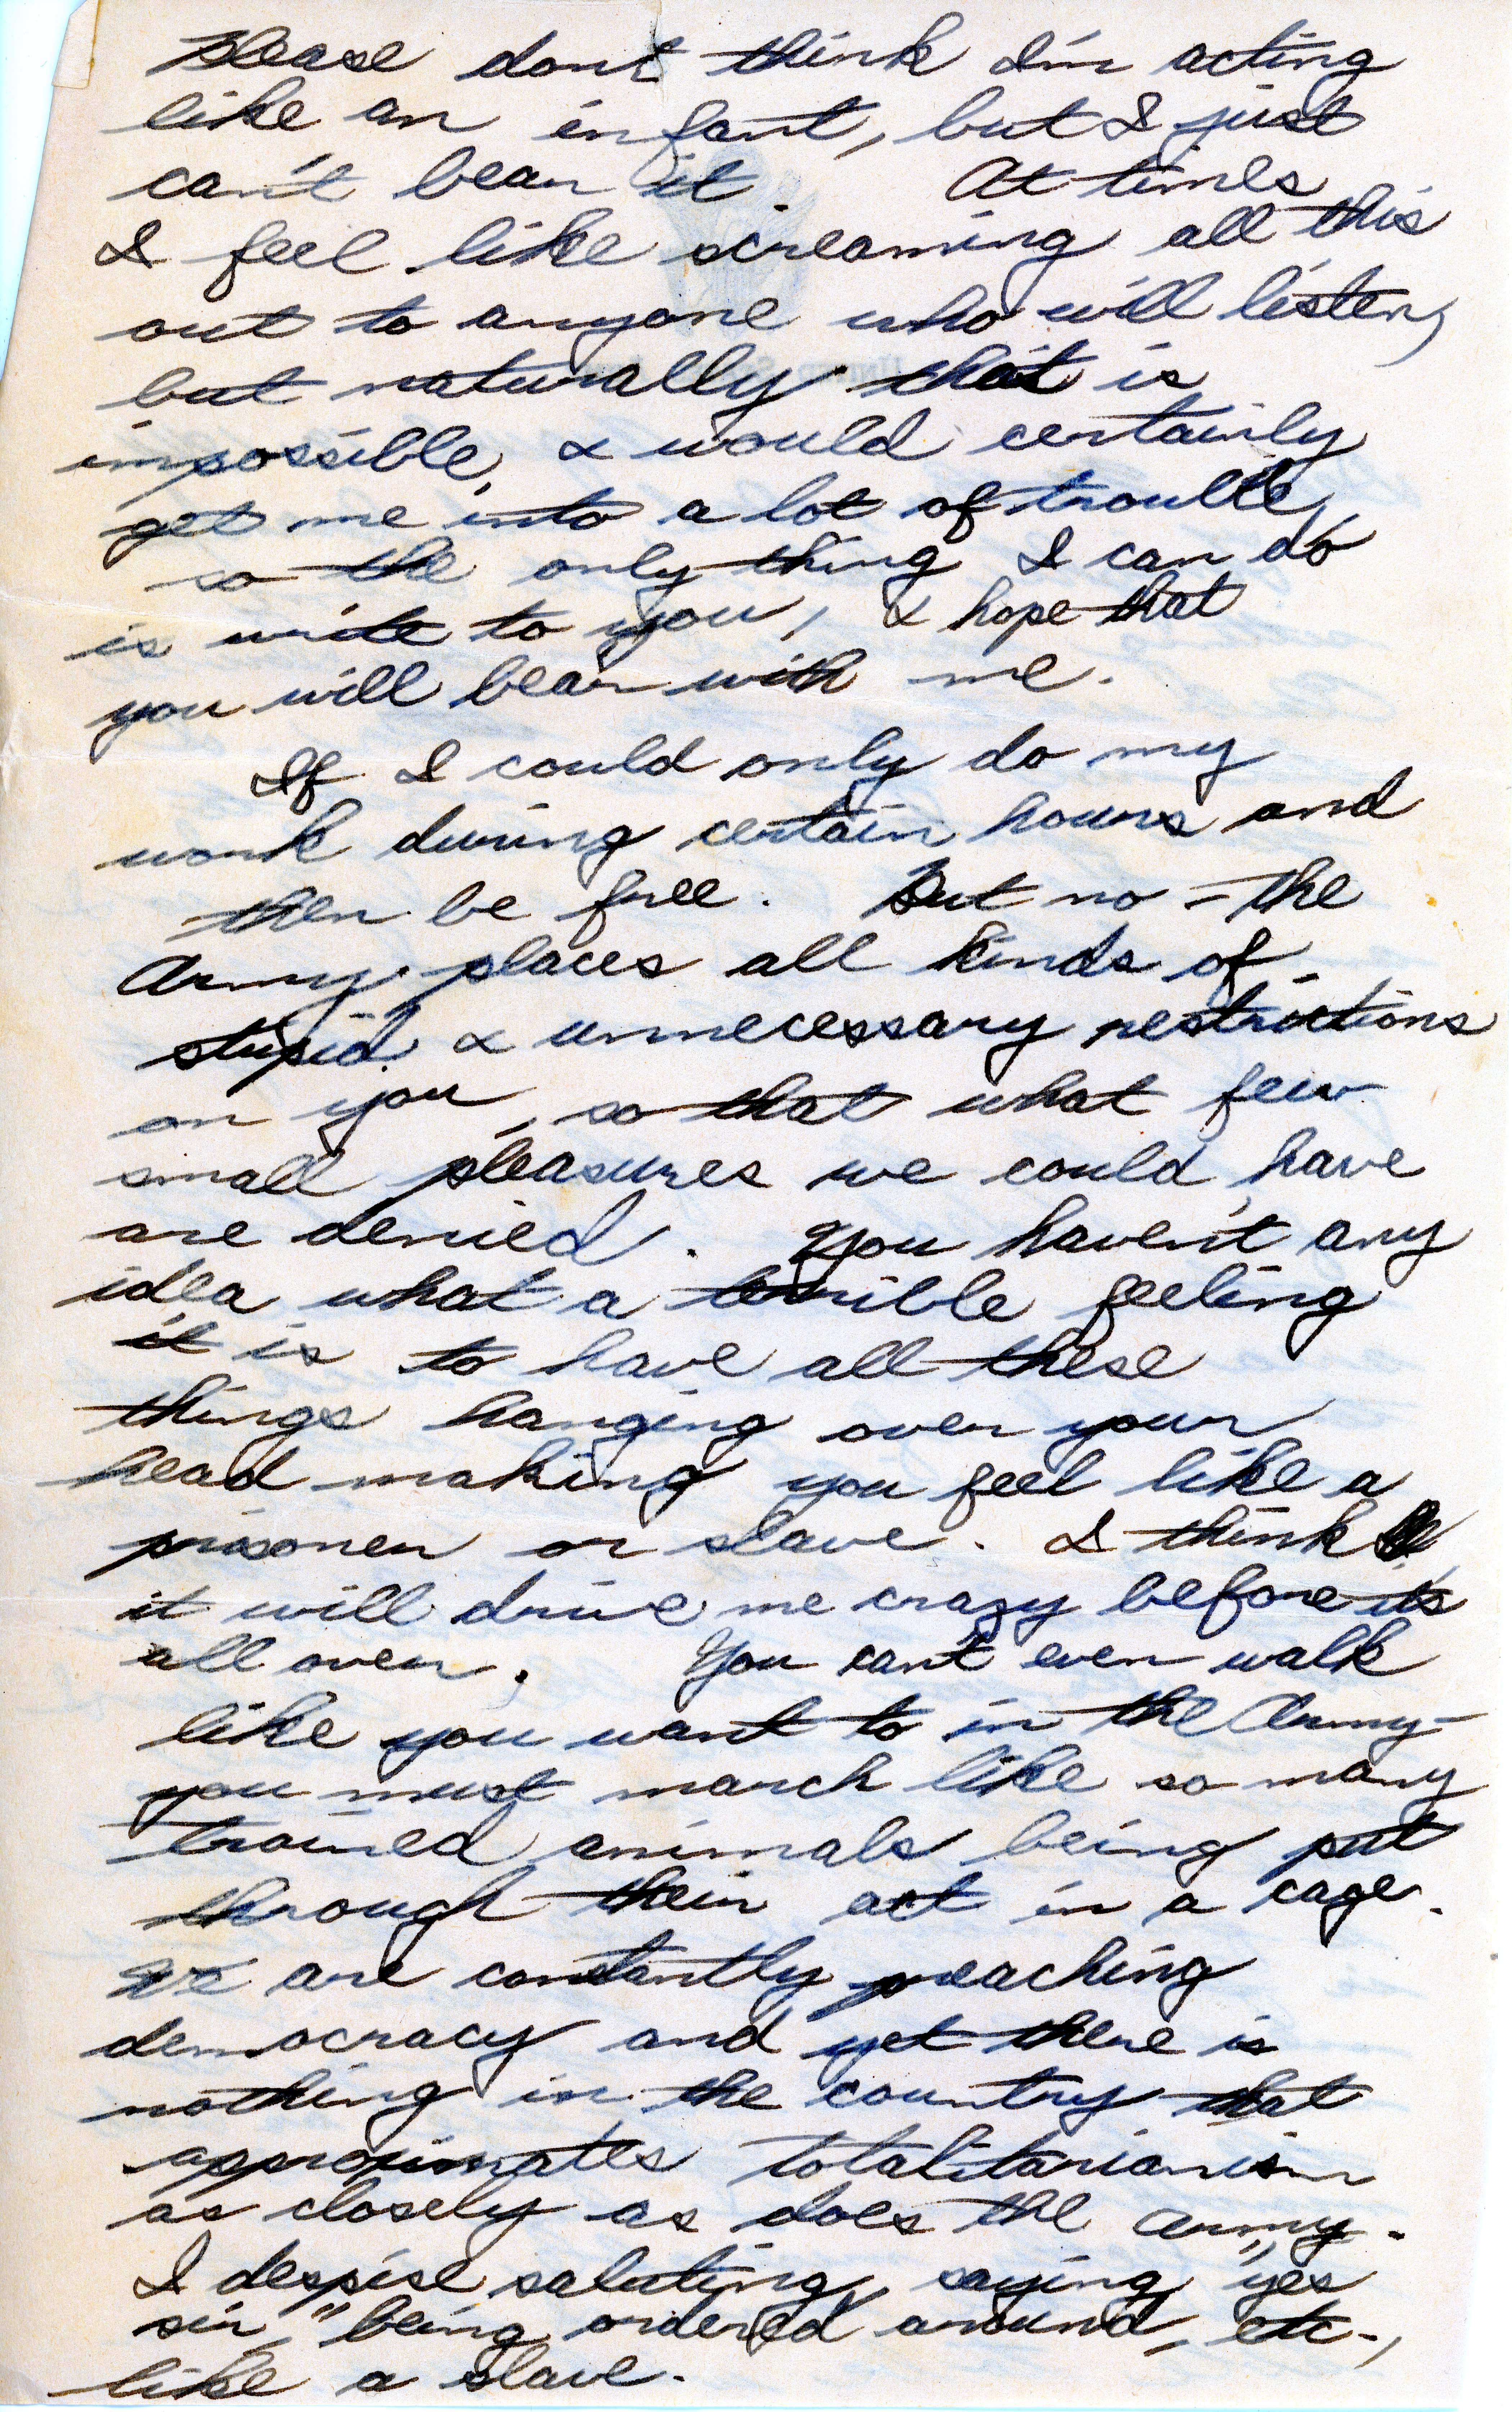 Please dont think I'm acting
like an infant, but I just
can't bear it. At times
I feel like screaming all this
out to anyone who will listen,
but naturally that is
impossible, & would certainly
get me into a lot of trouble,
so the only thing I can do
is write to you, & hope that
you will bear with me.
If I could only do my
work during certain hours and
then be free. But no - the
Army places all kinds of
stupid & unnecessary restrictions
on you, so that what few
small pleasures we could have
are denied. You haven't any
idea what a terrible feeling
it is to have all these
things hanging over your
head making you feel like a
prisoner or slave. I think
it will drive me crazy before its
all over. You can't even walk
like you want to in the Army -
you must march like so many
trained animals being put
through their act in a cage.
We are constantly preaching
democracy and yet there is
nothing in the country that
approximates totalitarianism
as closely as does the army.
I despise saluting, saying "yes
sir," being ordered around, etc.,
like a slave.